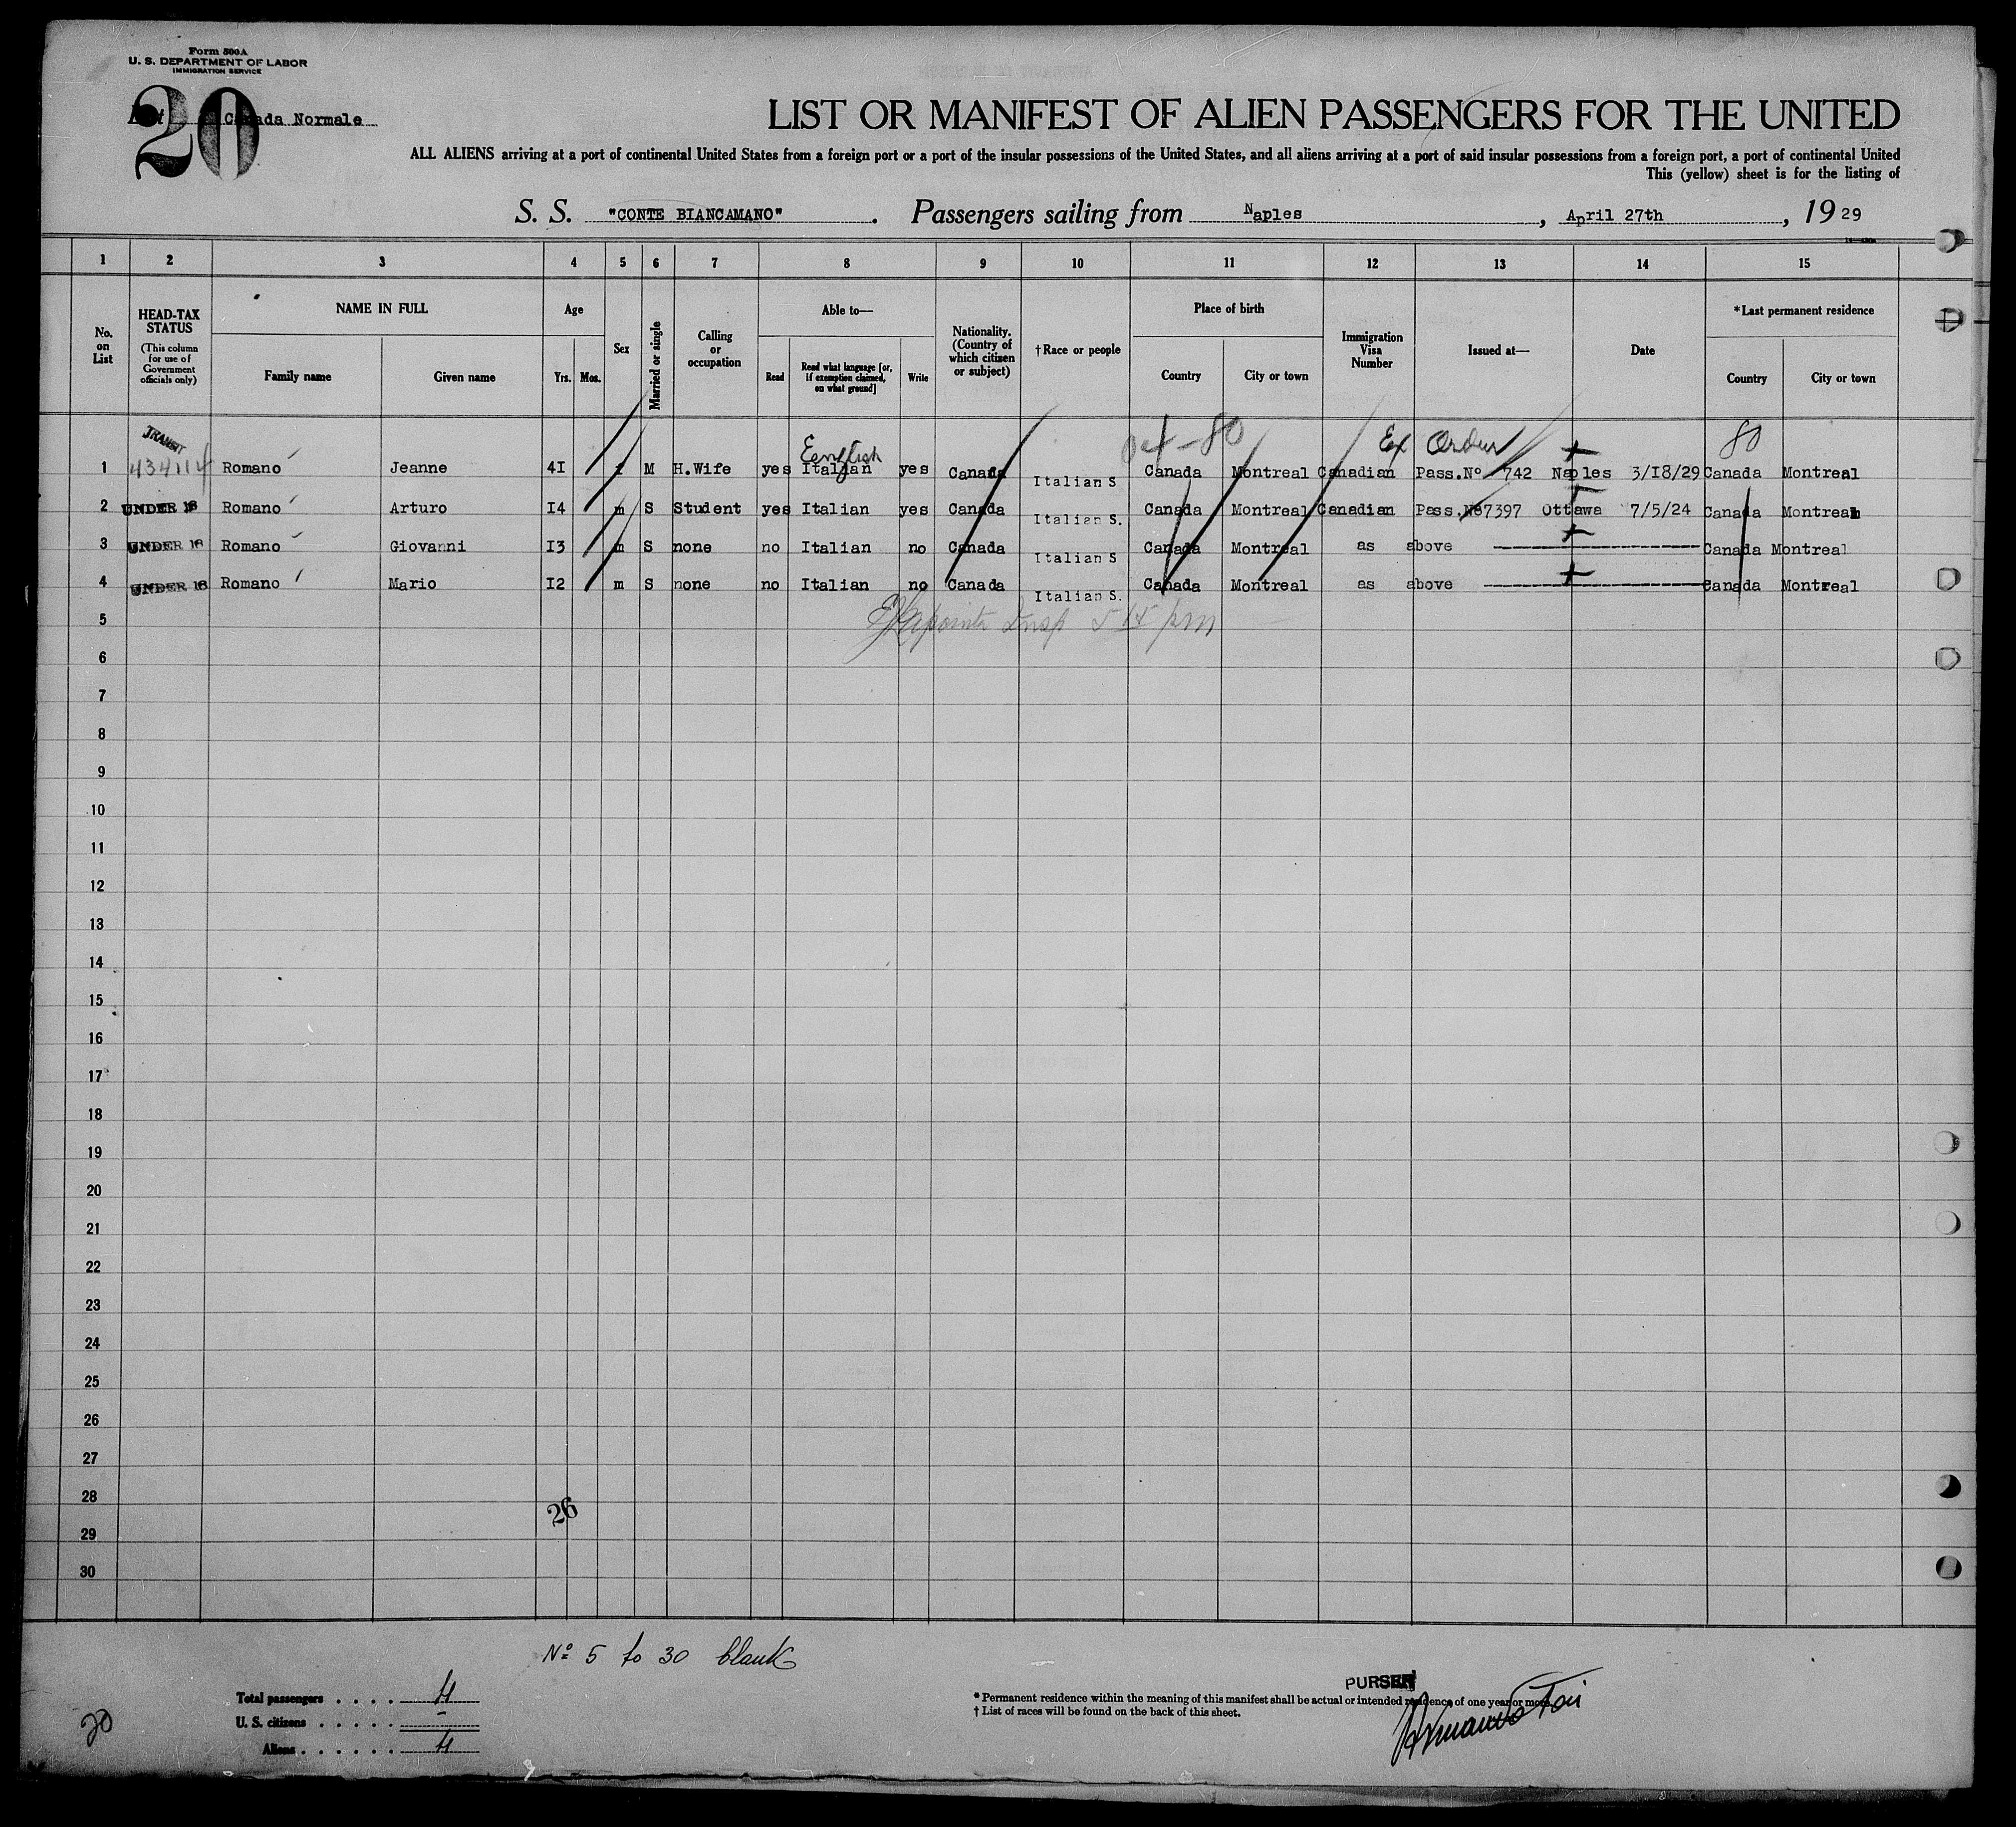 Form 500A
U. S. DEPARTMENT OF LABOR
IMMIGRATION SERVICE
20
Canada Normale
LIST OR MANIFEST OF ALIEN PASSENGERS FOR THE UNITED
ALL ALIENS arriving at a port of continental United States from a foreign port or a port of the insular possessions of the United States, and all aliens arriving at a port of said insular possessions from a foreign port, a port of continental United
This (yellow) sheet is for the listing of
S. S. "CONTE BIANCAMANO". Passengers sailing from Naples, April 27th, 1929
1 2 3 4 5 6 7 8 9 10 11 12 13 14 15
No. on List
HEAD-TAX STATUS
(This column for use of Government officials only)
NAME IN FULL
Family name Given name
Age
Yrs. Mos.
Sex
Married or single
Calling or occupation
Able to—
Read
Read what language [or, if exemption claimed, on what ground]
Write
Nationality. (Country of which citizen or subject)
†Race or people
Place of birth
Country City or town
Immigration Visa Number
Issued at—
Date
*Last permanent residence
Country City or town
TRANSIT English 04-80 Ex Order 80
1 434114 Romano Jeanne 41 f M H.Wife yes Italian yes Canada Italian S Canada Montreal Canadian Pass.Nº 742 Naples 3/18/29 Canada Montreal
2 UNDER 16 Romano Arturo 14 m S Student yes Italian yes Canada Italian S. Canada Montreal Canadian Pass. 7397 Ottawa 7/5/24 Canada Montreal
3 UNDER 16 Romano Giovanni 13 m S none no Italian no Canada Italian S Canada Montreal as above Canada Montreal
4 UNDER 16 Romano Mario 12 m S none no Italian no Canada Italian S. Canada Montreal as above Canada Montreal
5 Insp 5 15 pm
6
7
8
9
10
11
12
13
14
15
16
17
18
19
20
21
22
23
24
25
26
27
28
26
29
30
Nº 5 to 30 blank
Total passengers . . . . 4
U. S. citizens . . . . . -
Aliens . . . . . . 4
20
PURSER
* Permanent residence within the meaning of this manifest shall be actual or intended residence of one year or more.
† List of races will be found on the back of this sheet.